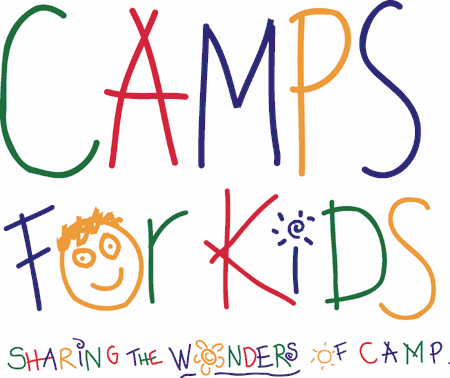 CAMPS
FOR KiDS
SHARiNG THE WONDERS OF CAMP.